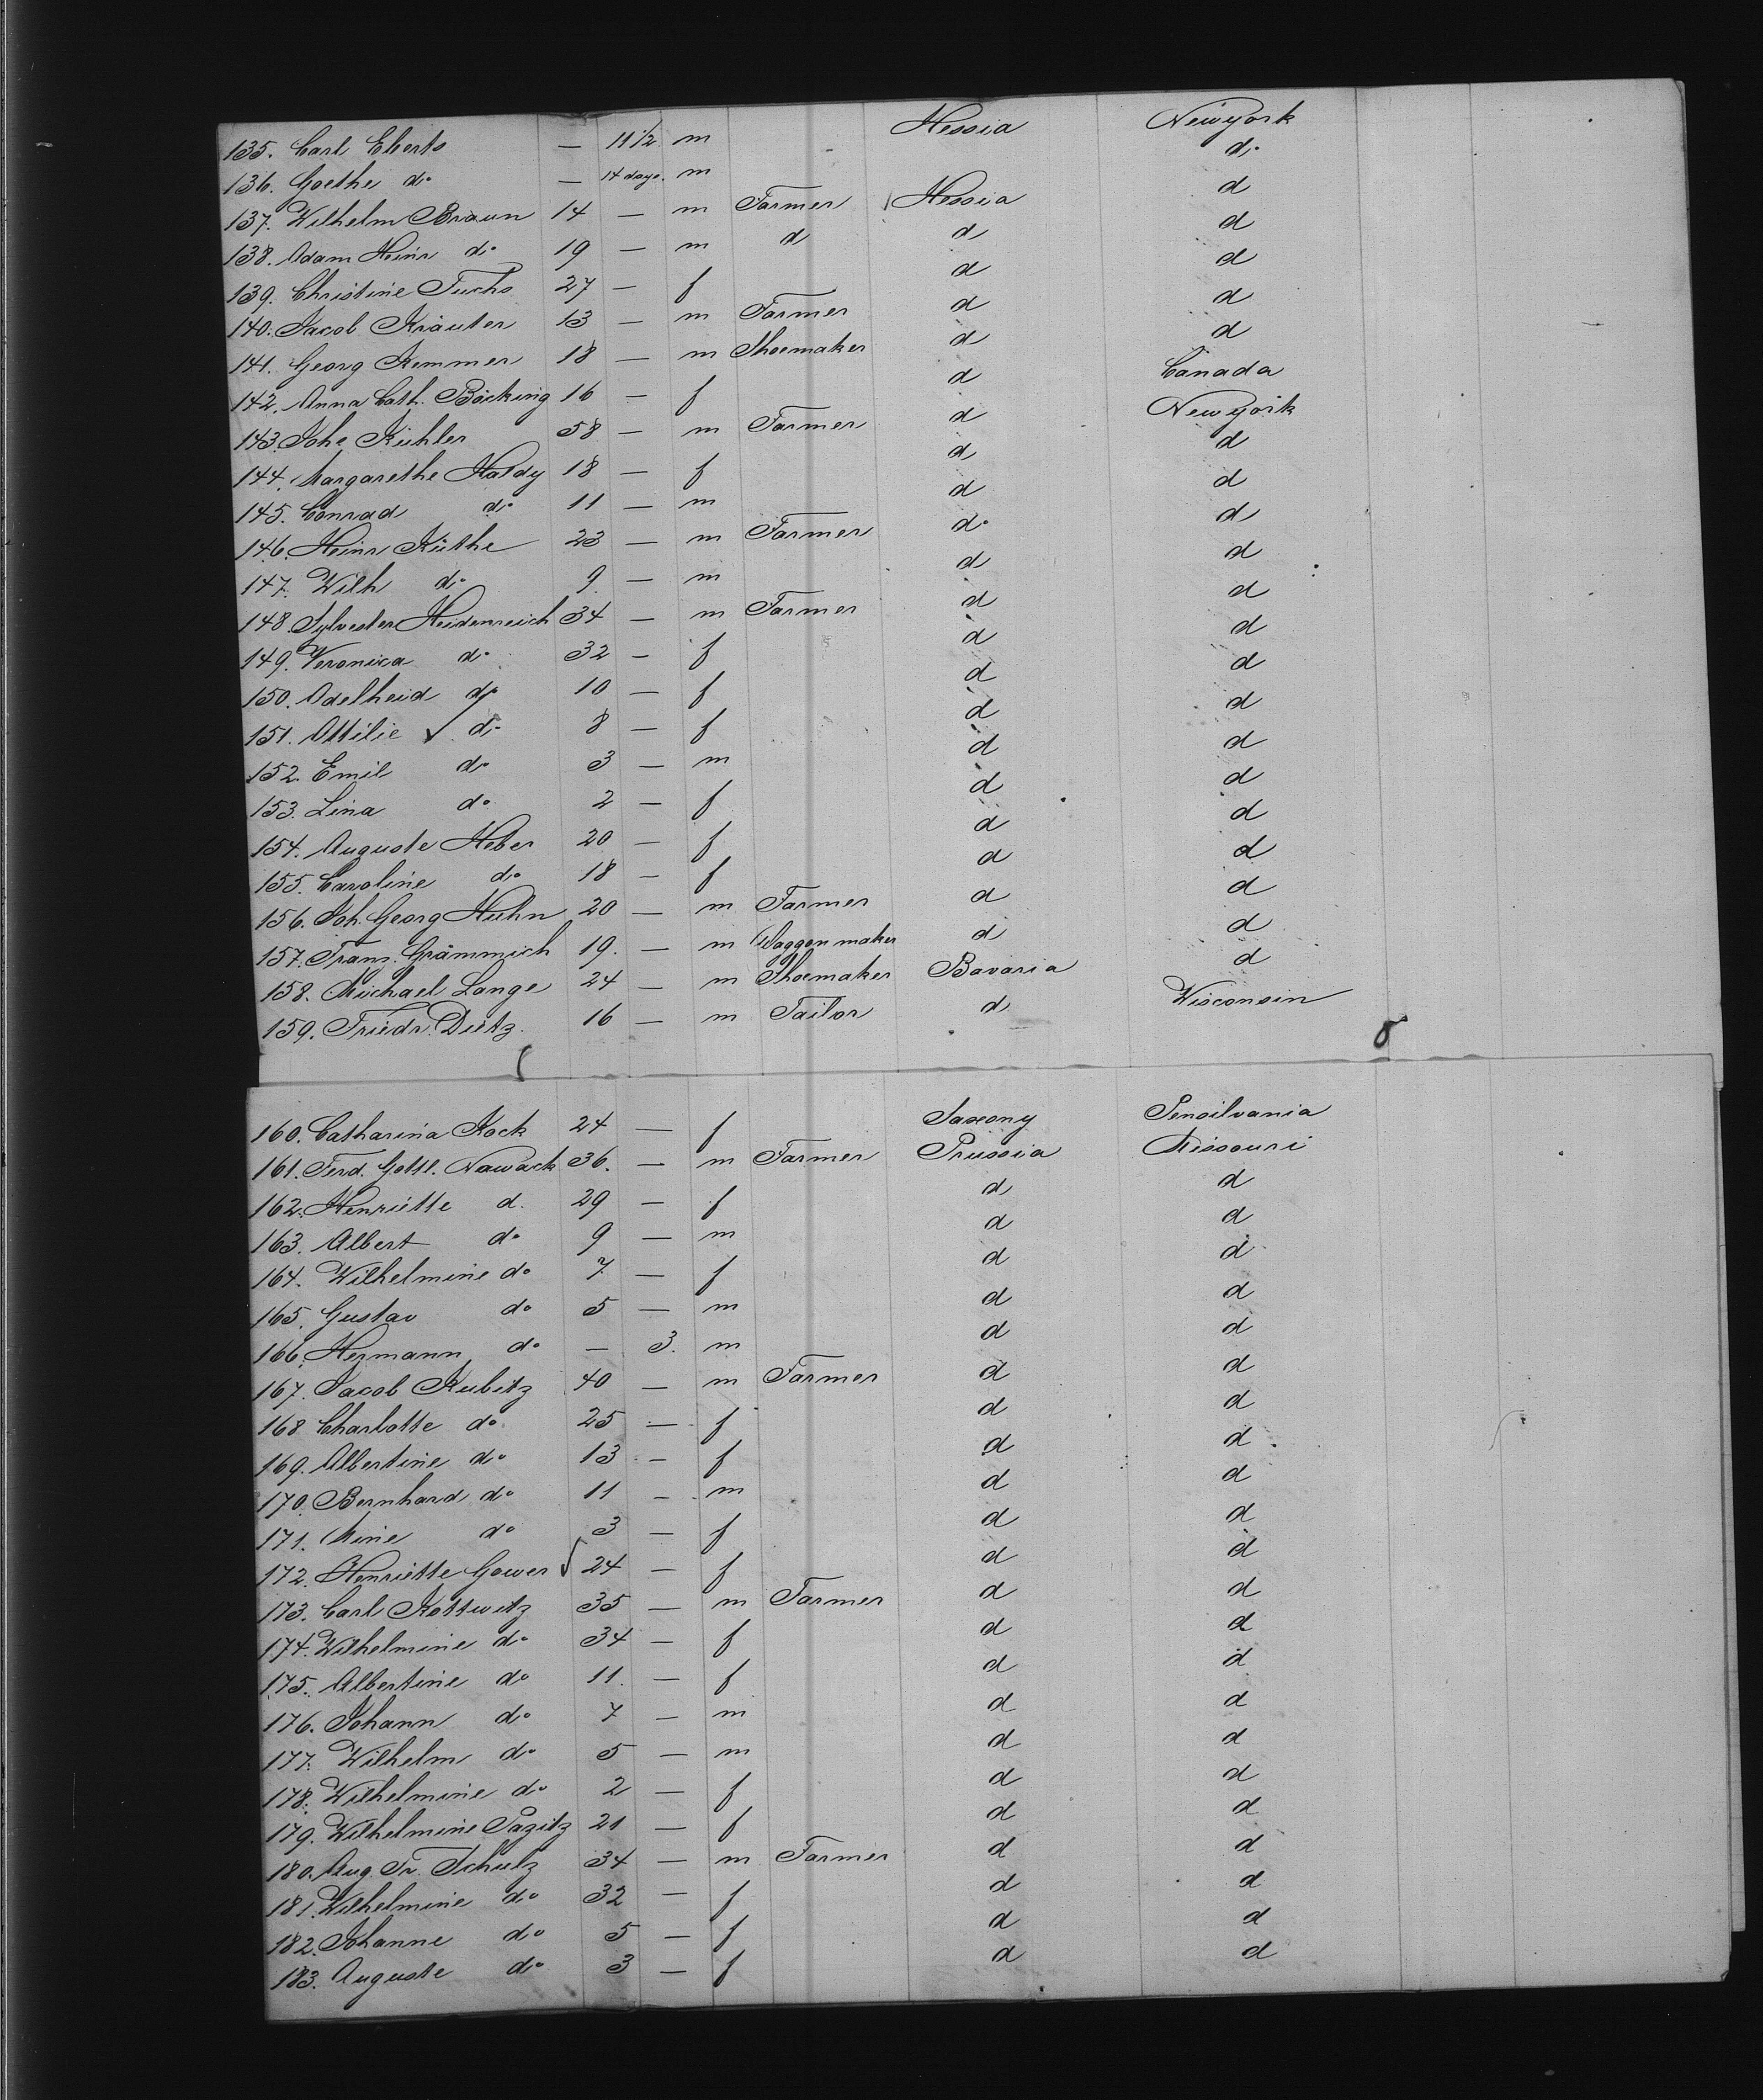 135. Carl Eberts — 11 1/2 m Hessia Newyork
136. Goethe do — 14 days. m do
137. Wilhelm Braun 14 — m Farmer Hessia d
138. Adam Heinr do 19 — m d d d
139. Christine Fuchs 27 — f d d
140. Jacob Kräuter 13 — m Farmer d d
141. Georg Kemmer 18 — m Shoemaker d d
142. Anna Cath. Böcking 16 — f d Canada
143. Johs Kühler 58 — m Farmer d Newyork
144. Margarethe Haldy 18 — f d d
145. Conrad do 11 — m d d
146. Heinr Küthe 23 — m Farmer do d
147. Wilh do 9 — m d d
148. Sylvester Heidenreich 34 — m Farmer d d
149. Veronica do 32 — f d d
150. Adelheid do 10 — f d d
151. Ottilie do 8 — f d d
152. Emil do 3 — m d d
153. Lina do 2 — f d d
154. Auguste Heber 20 — f d d
155. Caroline do 18 — f d d
156. Joh. Georg Huhn 20 — m Farmer d d
157. Franz Grämmich 19. — m Waggon maker d d
158. Michael Lange 24 — m Shoemaker Bavaria d
159. Friedr. Dietz. 16 — m Tailor d Wisconsin
160. Catharina Kock 24 — f Saxony Pensilvania
161. Ferd. Gottl. Nawack 36. — m Farmer Prussia Missouri
162. Henriette d. 29 — f d d
163. Albert do 9 — m d d
164. Wilhelmine do 7 — f d d
165. Gustav do 5 — m d d
166. Hermann do — 3. m d d
167. Jacob Kubitz 40 — m Farmer d d
168. Charlotte do 25 — f d d
169. Albertine do 13 — f d d
170. Bernhard do 11 — m d d
171. Mine do 3 — f d d
172. Henriette Gower 24 — f d d
173. Carl Kottwitz 35 — m Farmer d d
174. Wilhelmine do 34 — f d d
175. Albertine do 11. — f d d
176. Johann do 7 — m d d
177. Wilhelm do 5 — m d d
178. Wilhelmine do 2 — f d d
179. Wilhelmine Pazitz 21 — f d d
180. Aug. Fr. Schulz 34 — m Farmer d d
181. Wilhelmine do 32 — f d d
182. Johanne do 5 — f d d
183. Auguste do 3 — f d d